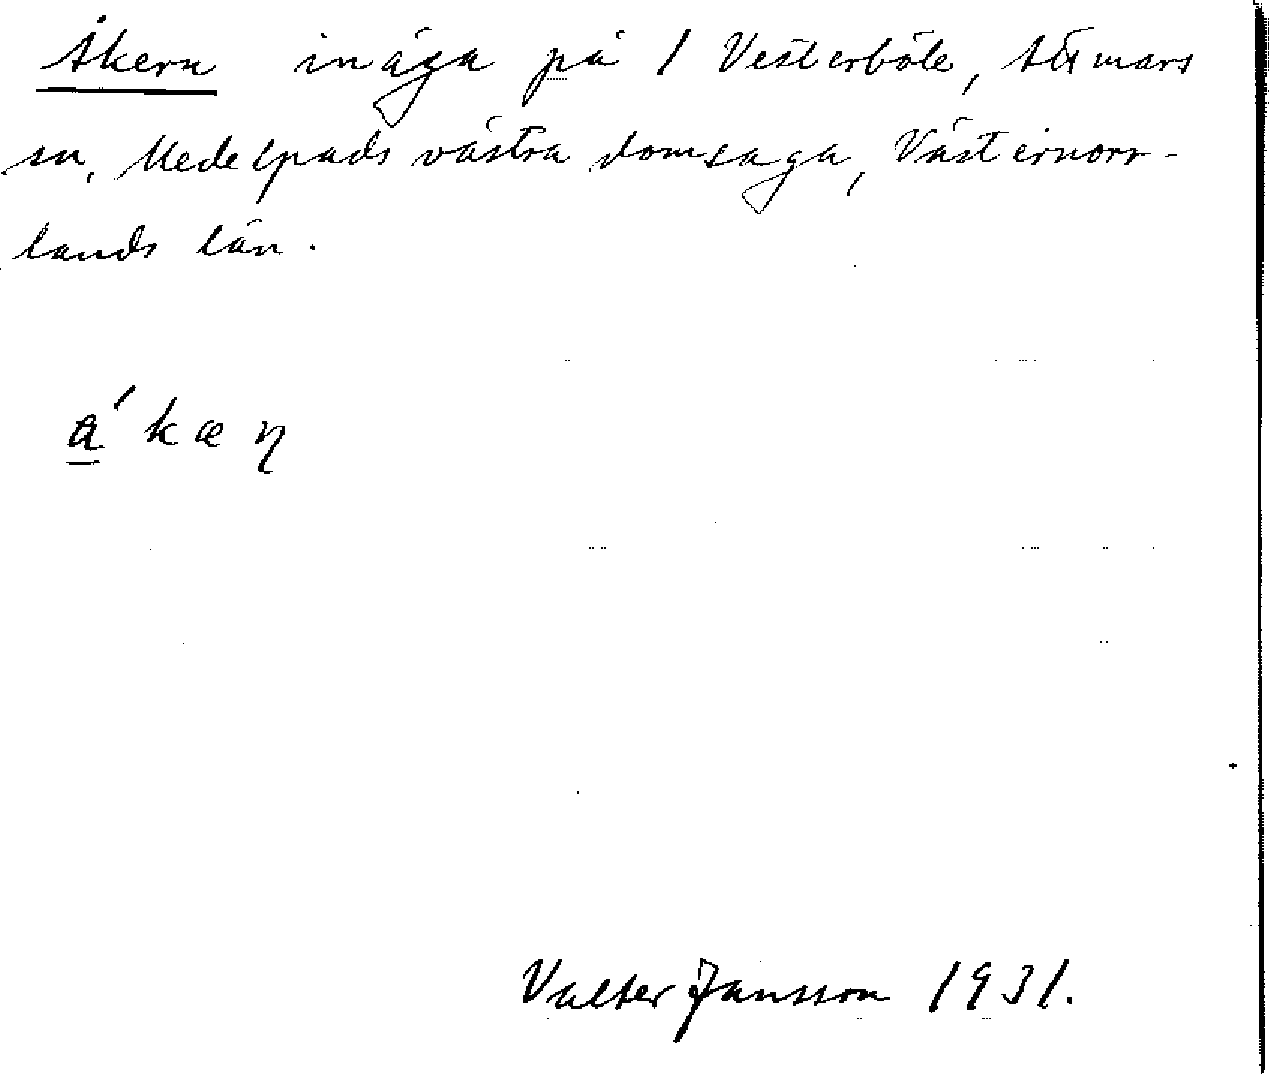 Åkern inäga på 1 Vesterböle, Attmars
sn, Medelpads västra domsaga, Västernorr-
lands län.
a´kæn
Valter Jansson 1931.